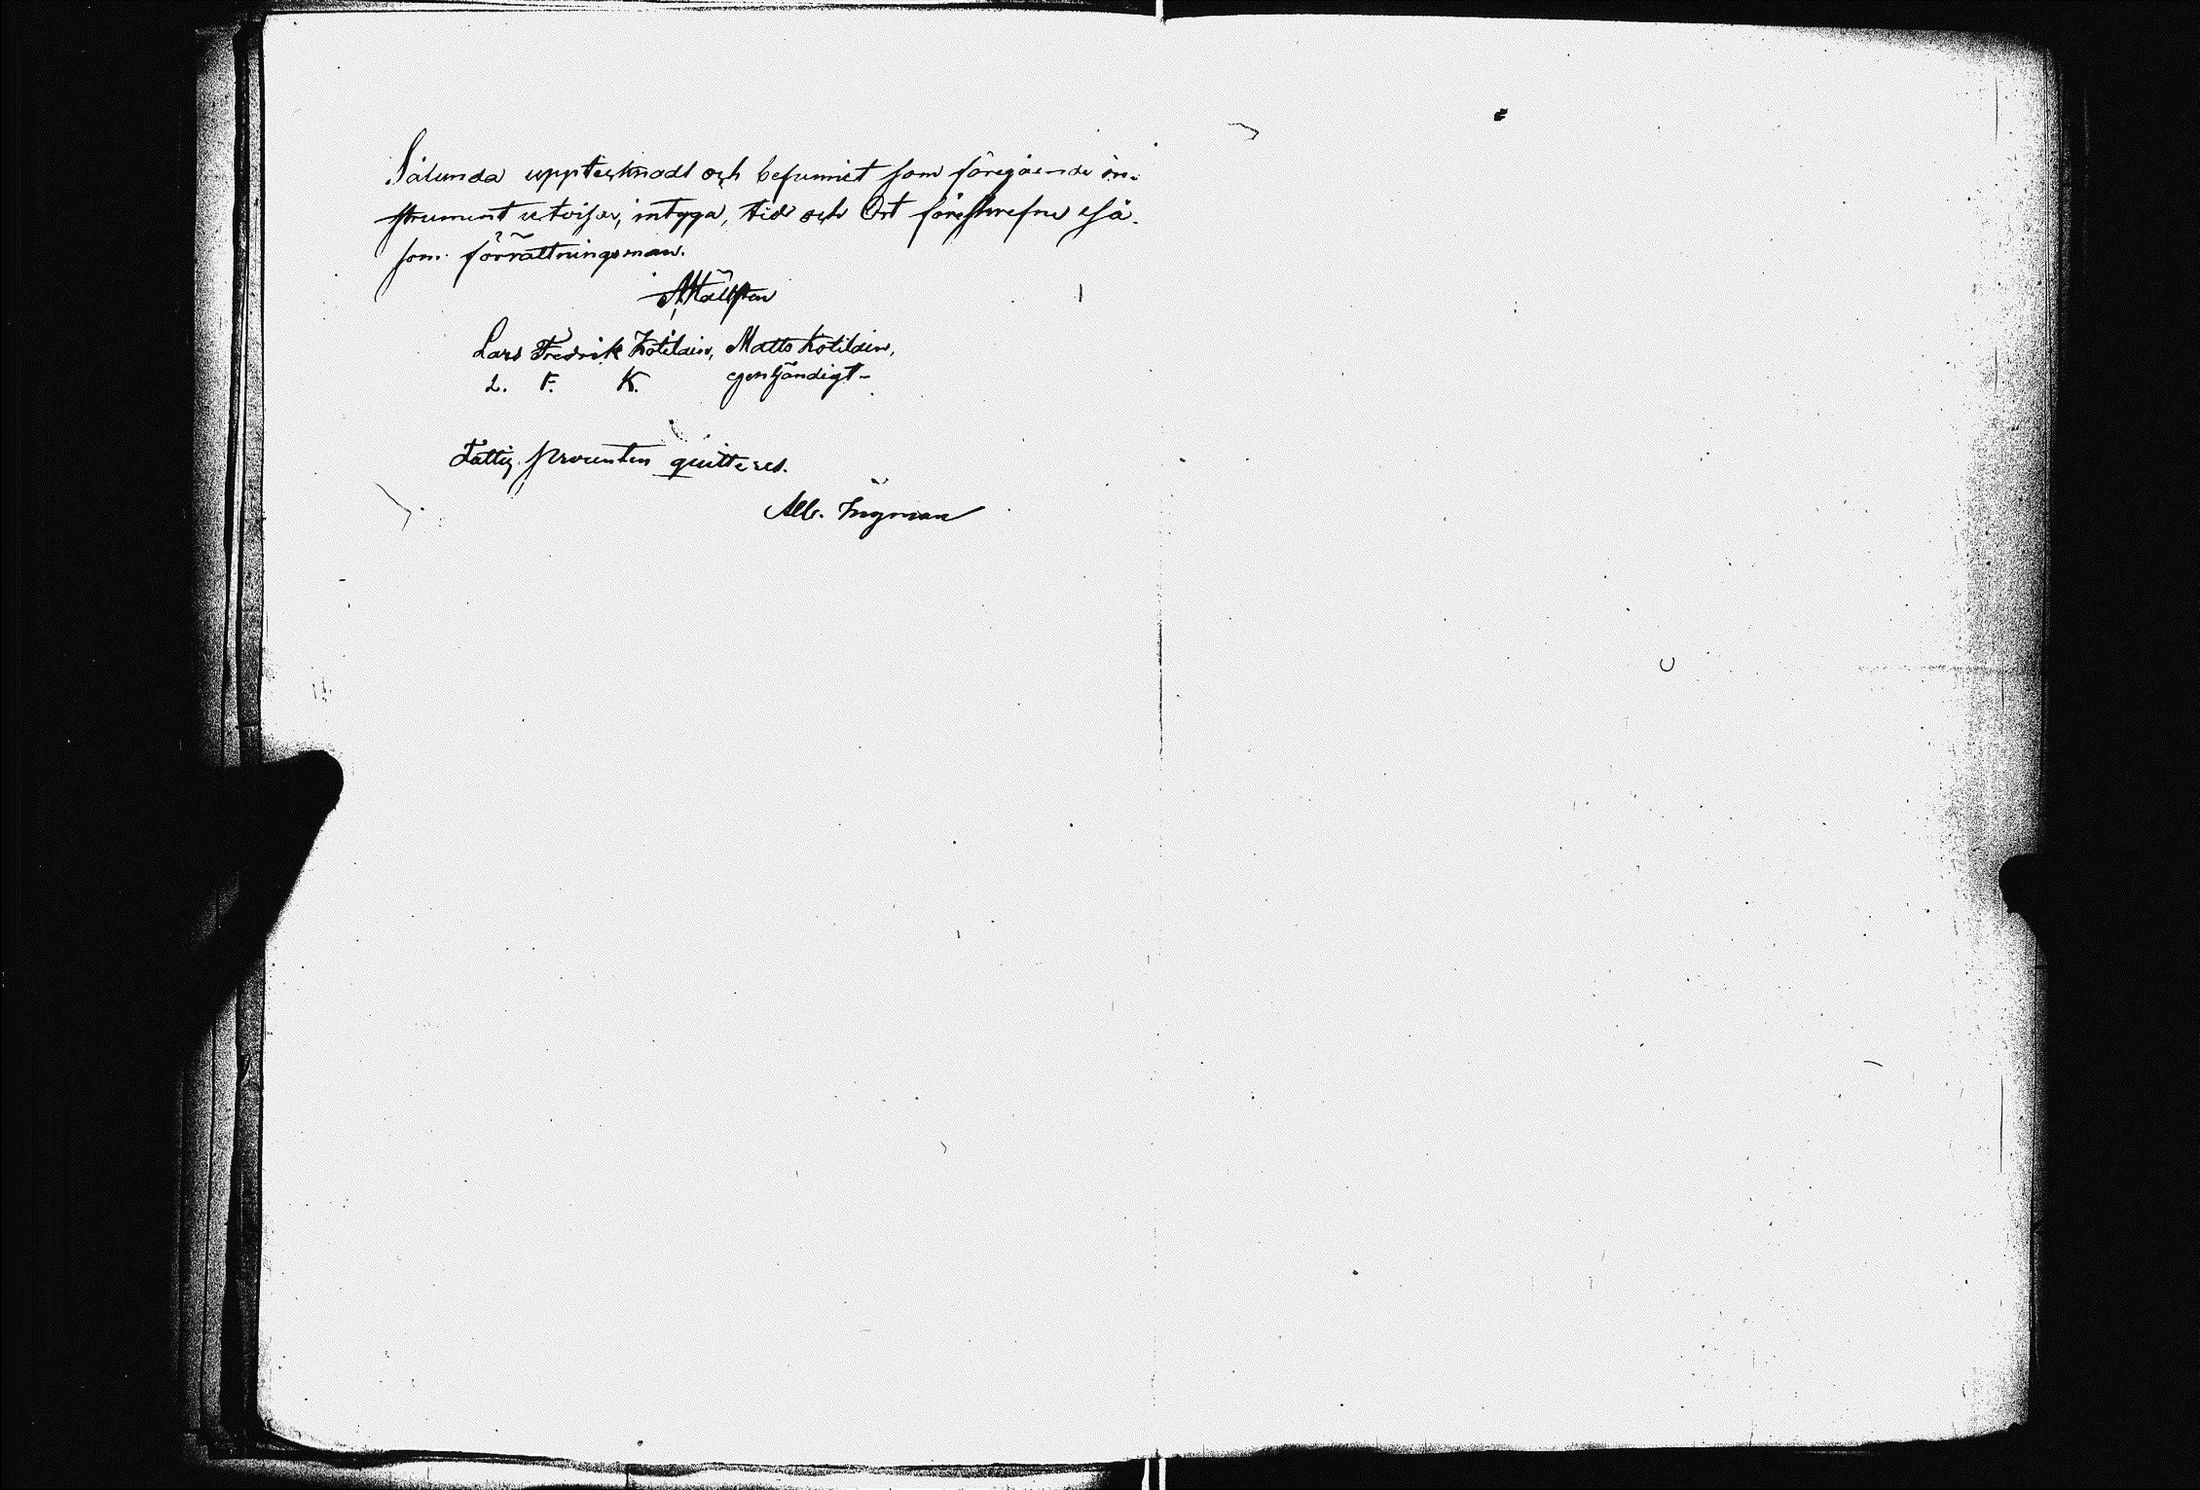 Sålunda upptecknadt och befunnit som föregående in-
strument utvisar, intyga, tid och Ort föreskrefne så-
som förrättningsman.
Lars Fredrik Kotilain, Matts Kotilain,
L. F. K. egenhändigt
Fattig procenten quitteres.
Alb. Ingman